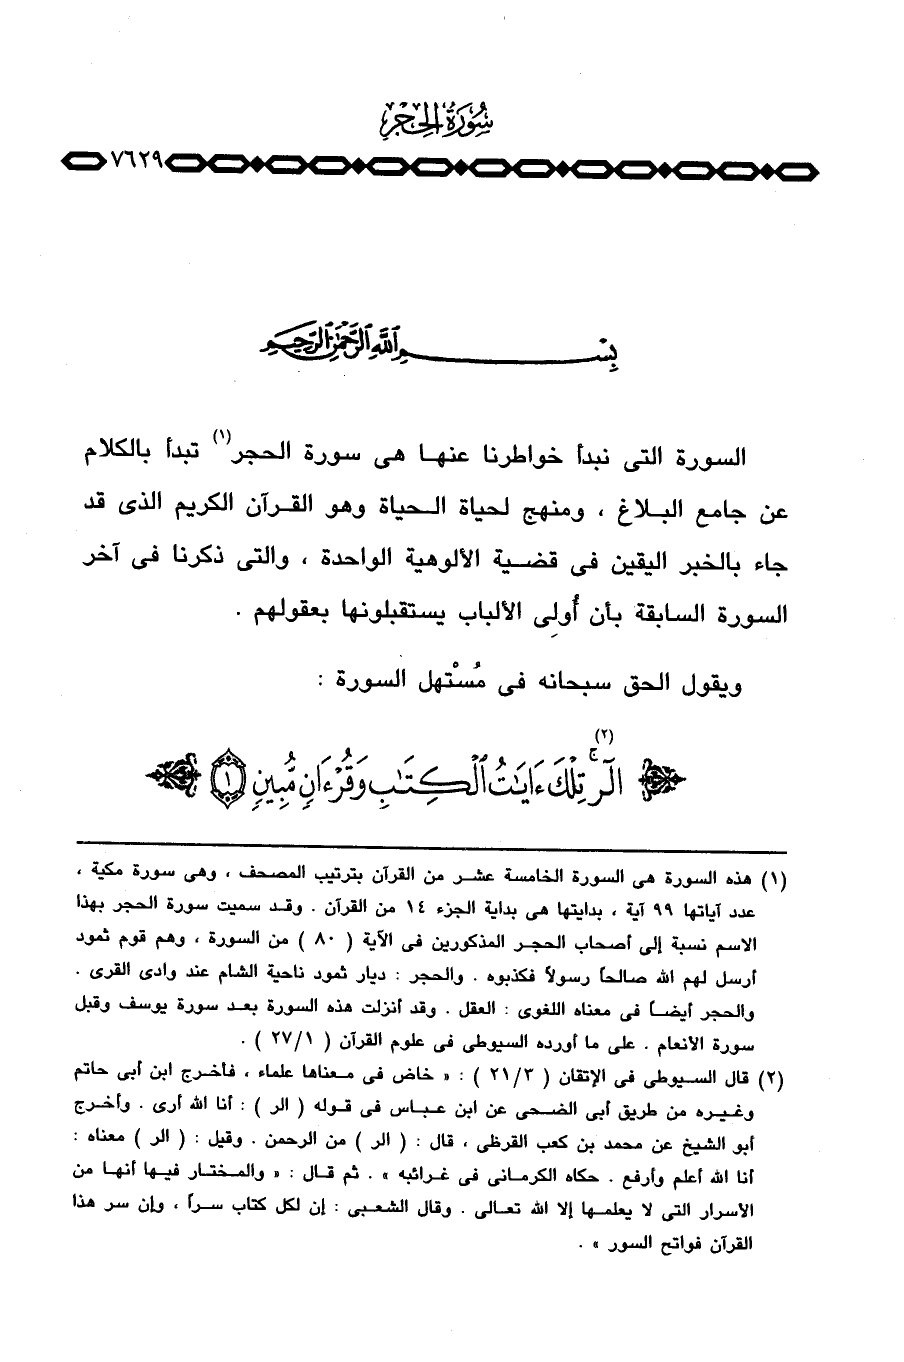 سورة الحجر
٧٦٢٩
بسم الله الرحمن الرحيم
السورة التى نبدأ خواطرنا عنها هى سورة الحجر(١) تبدأ بالكلام
عن جامع البلاغ ، ومنهج لحياة الحياة وهو القرآن الكريم الذى قد
جاء بالخبر اليقين فى قضية الألوهية الواحدة ، والتى ذكرنا فى آخر
السورة السابقة بأن أُولِى الألباب يستقبلونها بعقولهم .
ويقول الحق سبحانه فى مُسْتهل السورة :
(٢)
الٓرۚ تِلْكَ ءَايَٰتُ ٱلْكِتَٰبِ وَقُرْءَانٍ مُّبِينٍ ١
(١) هذه السورة هى السورة الخامسة عشر من القرآن بترتيب المصحف ، وهى سورة مكية ،
عدد آياتها ٩٩ آية ، بدايتها هى بداية الجزء ١٤ من القرآن . وقد سميت سورة الحجر بهذا
الاسم نسبة إلى أصحاب الحجر المذكورين فى الآية ( ٨٠ ) من السورة ، وهم قوم ثمود
أرسل لهم الله صالحاً رسولاً فكذبوه . والحجر : ديار ثمود ناحية الشام عند وادى القرى .
والحجر أيضاً فى معناه اللغوى : العقل . وقد أنزلت هذه السورة بعد سورة يوسف وقبل
سورة الأنعام . على ما أورده السيوطى فى علوم القرآن ( ٢٧/١ ) .
(٢) قال السيوطى فى الإتقان ( ٢١/٣ ) : « خاض فى معناها علماء ، فأخرج ابن أبى حاتم
وغيره من طريق أبى الضحى عن ابن عباس فى قوله ( الر ) : أنا الله أرى . وأخرج
أبو الشيخ عن محمد بن كعب القرظى ، قال : ( الر ) من الرحمن . وقيل : ( الر ) معناه :
أنا الله أعلم وأرفع . حكاه الكرمانى فى غرائبه » . ثم قال : « والمختار فيها أنها من
الأسرار التى لا يعلمها إلا الله تعالى . وقال الشعبى : إن لكل كتاب سراً ، وإن سر هذا
القرآن فواتح السور » .